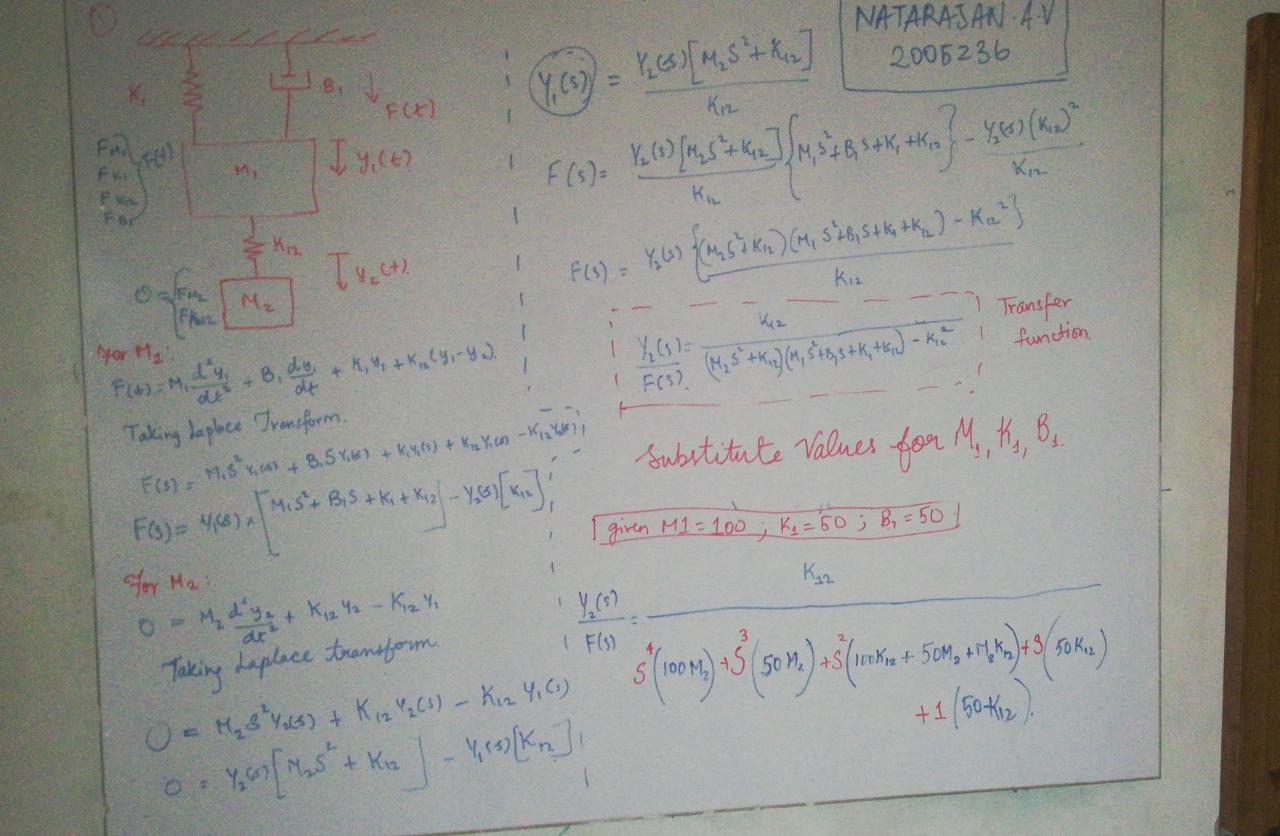 ①
K₁
B₁
F(t)
FM₁
FK₁
FK₁₂
FB₁
F(t)
M₁
y₁(t)
K₁₂
y₂(t)
0 =
FM₂
FK₁₂
M₂
For M₁:
F(t) = M₁ d²y₁/dt² + B₁ dy₁/dt + K₁y₁ + K₁₂(y₁-y₂).
Taking Laplace Transform.
F(s) = M₁S²Y₁(s) + B₁SY₁(s) + K₁Y₁(s) + K₁₂Y₁(s) - K₁₂Y₂(s)
F(s) = Y₁(s) × [M₁S² + B₁S + K₁ + K₁₂] - Y₂(s)[K₁₂]
For M₂:
0 = M₂ d²y₂/dt² + K₁₂y₂ - K₁₂y₁
Taking Laplace transform.
0 = M₂S²Y₂(s) + K₁₂Y₂(s) - K₁₂Y₁(s)
0 = Y₂(s)[M₂S² + K₁₂] - Y₁(s)[K₁₂]
NATARAJAN.A.V
2005236
Y₁(s) = Y₂(s)[M₂S² + K₁₂] / K₁₂
F(s) = Y₂(s)[M₂S² + K₁₂] / K₁₂ {M₁S² + B₁S + K₁ + K₁₂} - Y₂(s)(K₁₂)² / K₁₂
F(s) = Y₂(s) {(M₂S² + K₁₂)(M₁S² + B₁S + K₁ + K₁₂) - K₁₂²} / K₁₂
Y₂(s)/F(s) = K₁₂ / (M₂S² + K₁₂)(M₁S² + B₁S + K₁ + K₁₂) - K₁₂²
Transfer
function.
Substitute Values for M₁, K₁, B₁.
given M1 = 100 ; K₁ = 50 ; B₁ = 50
Y₂(s)/F(s) = K₁₂ / S⁴(100M₂) + S³(50M₂) + S²(100K₁₂ + 50M₂ + M₂K₁₂) + S(50K₁₂)
+ 1 (50-K₁₂).